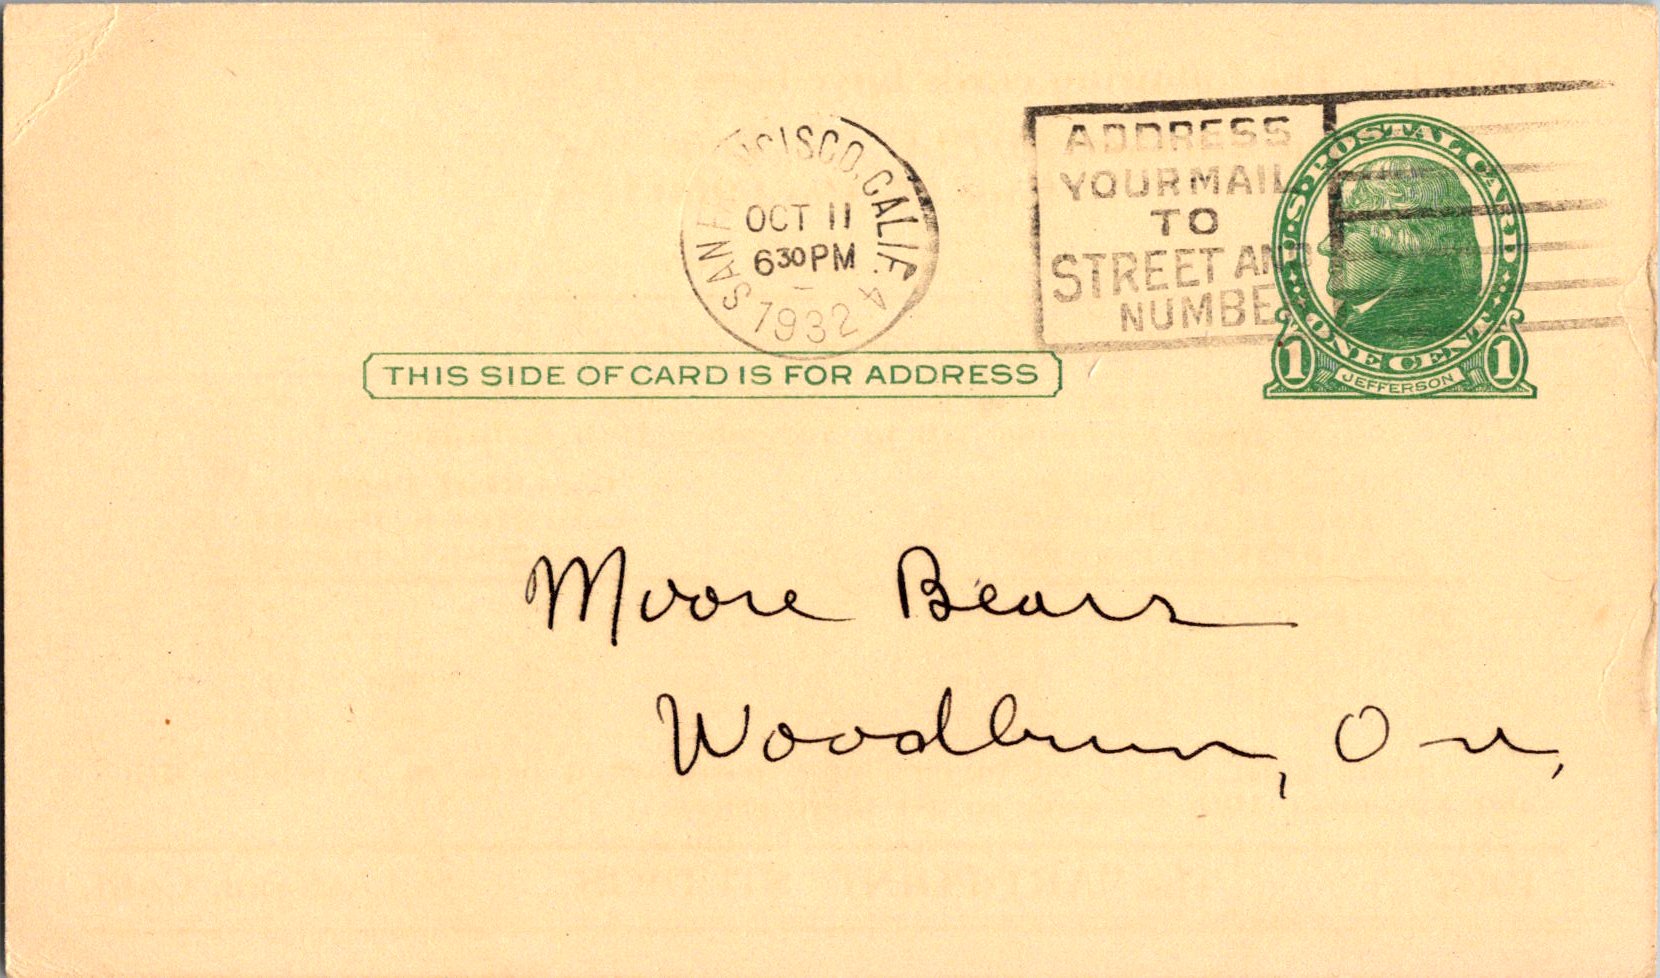 SAN FRANCISCO, CALIF. 4
OCT 11
6 30 PM
1932
ADDRESS
YOUR MAIL
TO
STREET AND
NUMBER
U.S. POSTAL CARD
ONE CENT
1 JEFFERSON 1
THIS SIDE OF CARD IS FOR ADDRESS
Moore Bears
Woodburn, Ore,